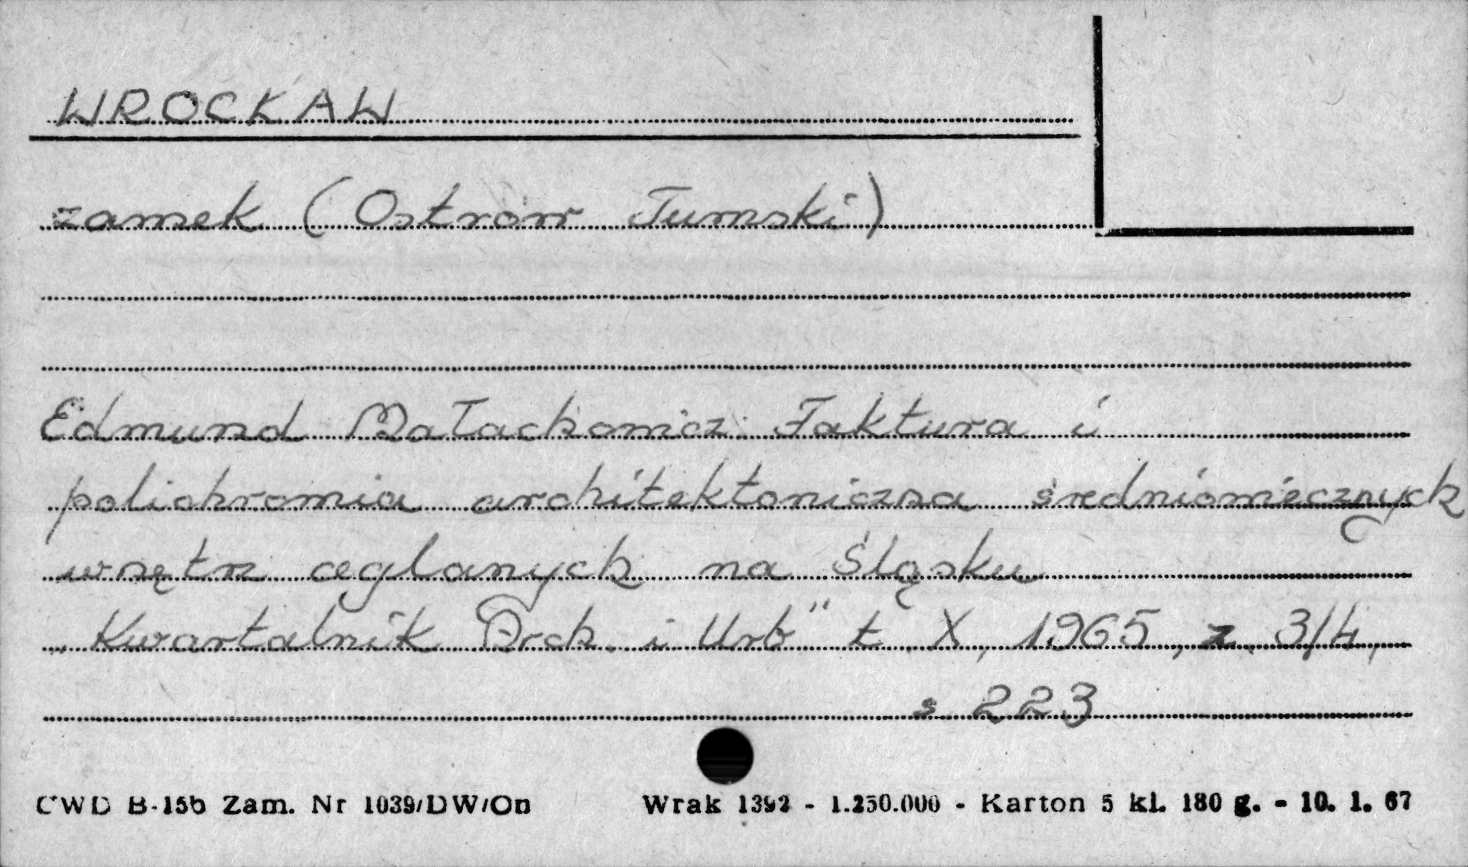 WROCŁAW
zamek (Ostrów Tumski)
Edmund Małachowicz: Faktura i
polichromia architektoniczna średniowiecznych
wnętrz ceglanych na Śląsku
„Kwartalnik Arch. i Urb" t. X, 1965, z. 3/4,
s 223
CWD B-15b Zam. Nr 1039/DW/On Wrak 1392 - 1.250.000 - Karton 5 kl. 180 g. - 10. 1. 67